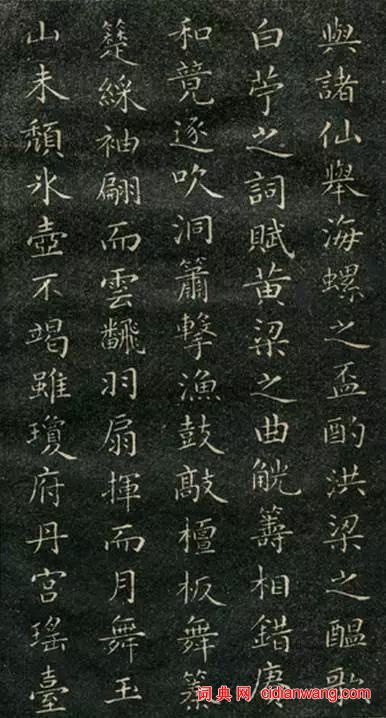 與諸仙舉海螺之盃酌洪梁之醞歌
白苧之詞賦黃粱之曲觥籌相錯賡
和竟逐吹洞簫擊漁鼓敲檀板舞
綵袖翩而雲飜羽扇揮而月舞玉
山未頽氷壺不竭雖瓊府丹宮瑤臺
词典网 cidianwang.com